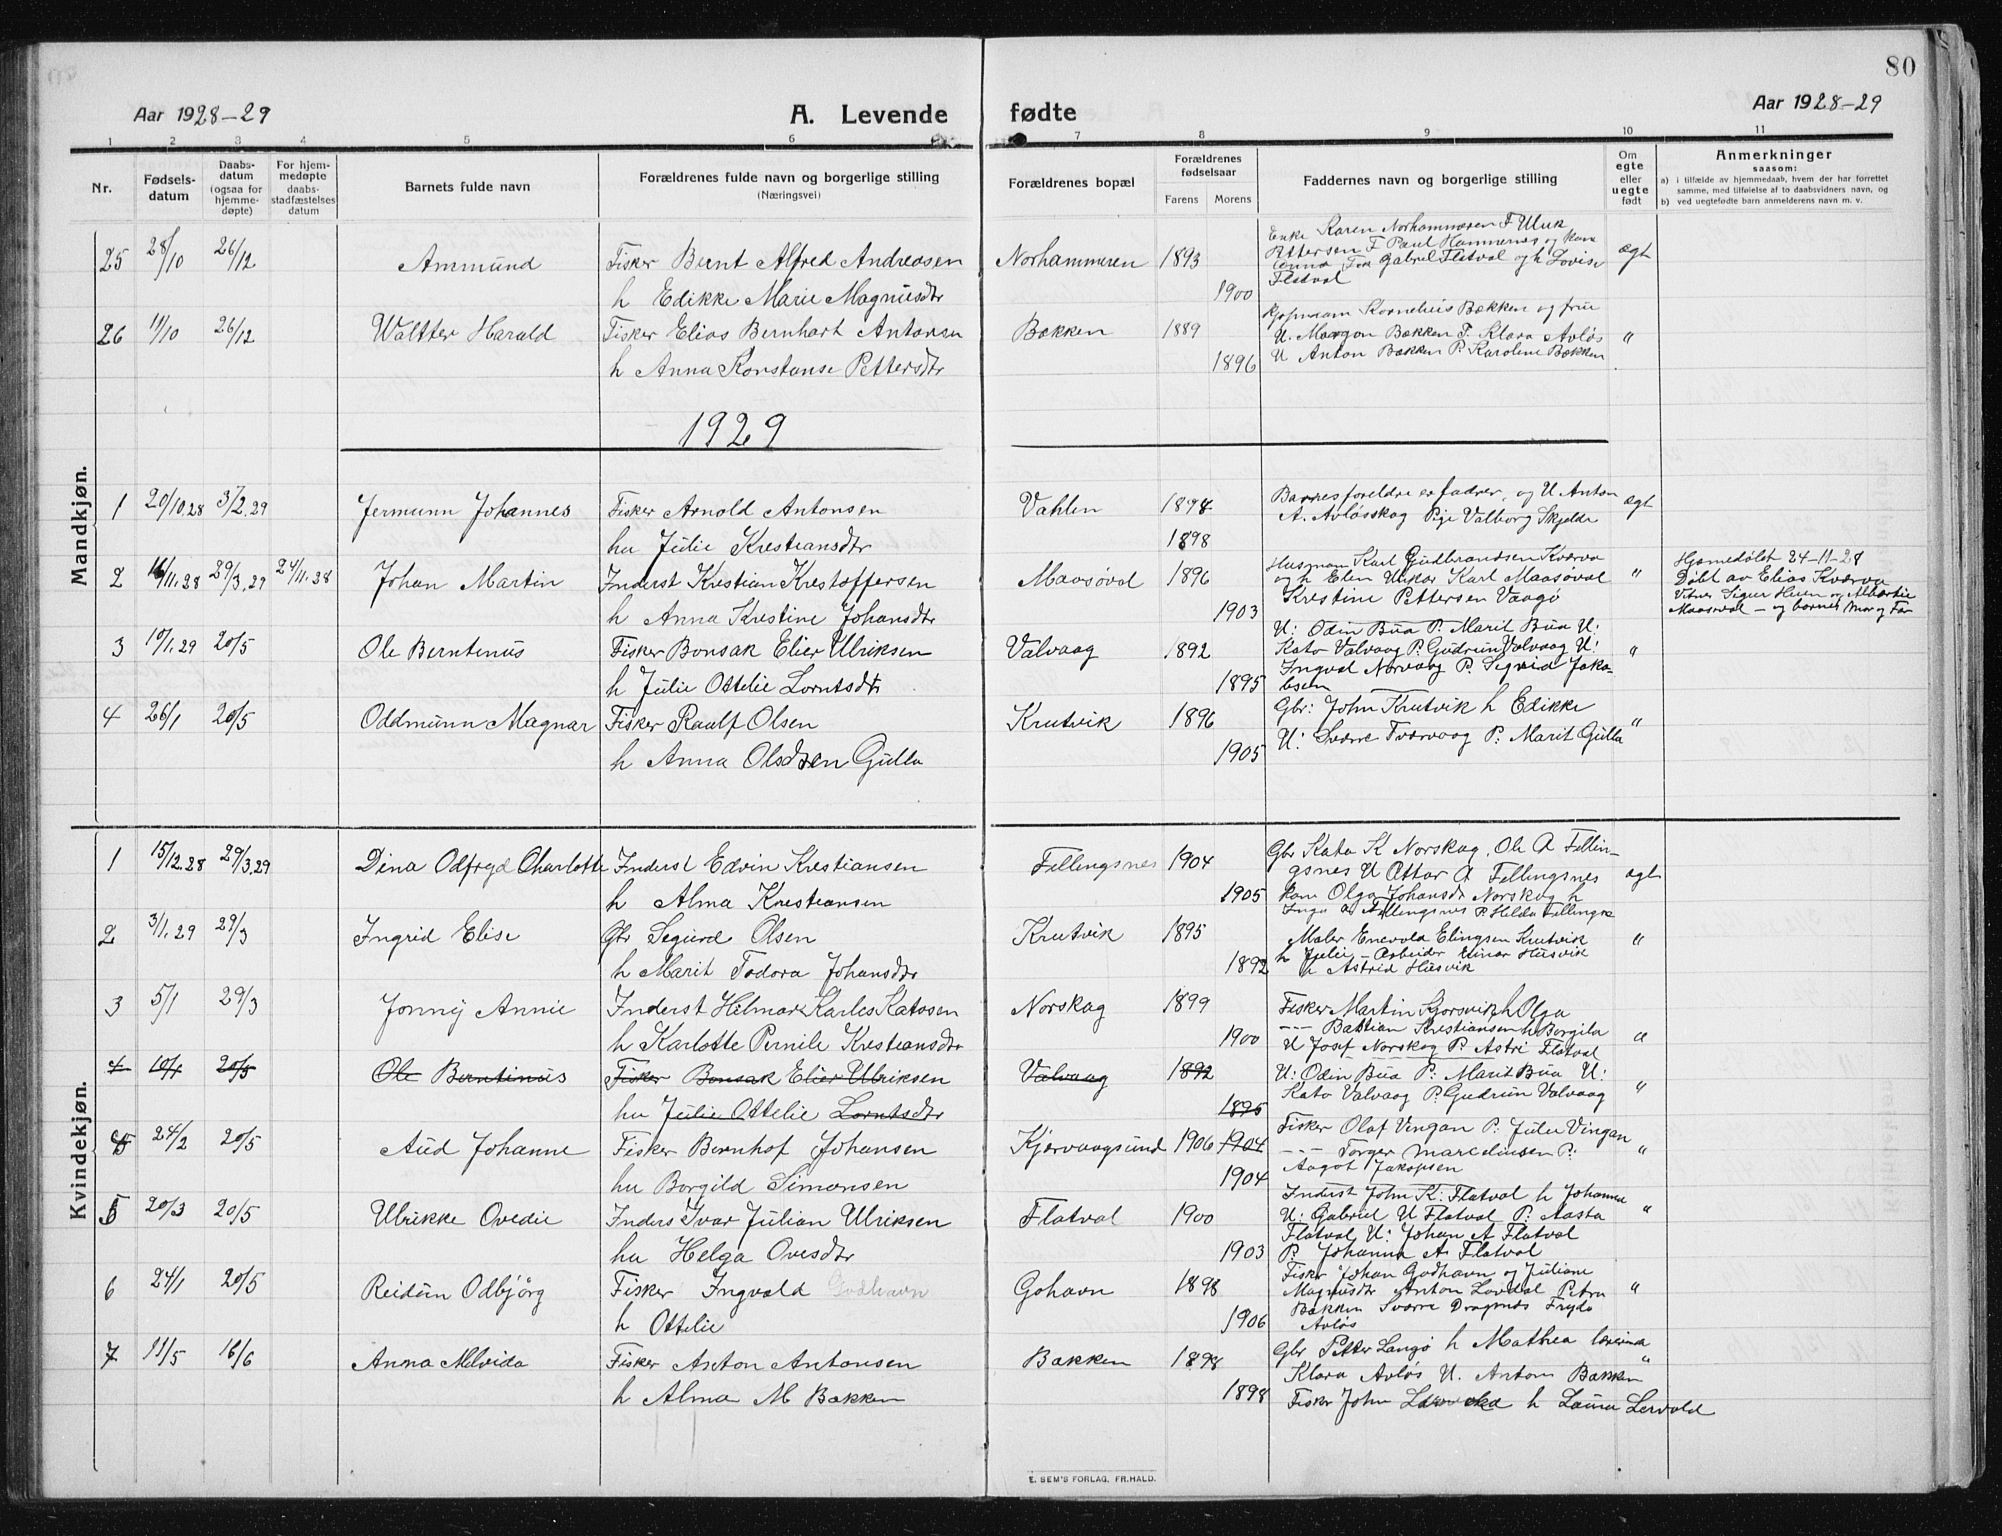 80
Aar 1928-29 A. Levende fødte Aar 1928-29
1 2 3 4 5 6 7 8 9 10 11
Nr. Fødsels-datum Daabs-datum (ogsaa for hjemme-døpte) For hjem-medøpte daabs-stadfæstelses datum Barnets fulde navn Forældrenes fulde navn og borgerlige stilling (Næringsvei) Forældrenes bopæl Forældrenes fødselsaar Farens Morens Faddernes navn og borgerlige stilling Om egte eller uegte født Anmerkninger saasom:
a) i tilfælde av hjemmedaab, hvem der har forrettet samme, med tilføielse af to daabsvidners navn, og
b) ved uegtefødte barn anmelderens navn m. v.
Mandkjøn.
25 28/10 26/12 Ammund Fisker Bernt Alfred Andreasen Norhammeren 1893 Enke Karen Norhammeren F Ulrik ægt
h Edikke Marie Magnusdtr 1900 Pettersen F Paul Hammernes og kone
Anna Fru Gabriel Flatval og h Lovise
Flatval
26 11/10 26/12 Waltter Harald Fisker Elias Bernhart Antonsen Bækken 1889 Kjøpmann Kornelius Bækken og frue "
h Anna Konstanse Pettersdtr 1896 U. Morgon Bækken P. Klara Avløs
U Anton Bækken P. Karoline Bækken
1929
1 20/10.28 3/2.29 Jermunn Johannes Fisker Arnold Antonsen Vahlen 1898 Barnes foreldre er fadrer, og U Anton ægt
hu Julie Krestiansdtr 1898 A. Avløsskag Pige Valborg Skjelde
2 16/11.28 29/3.29 24/11.28 Johan Martin Inderst Kristian Krestoffersen Maasøval 1896 Husman Karl Gudbrandsen Kværva " Hjemedøbt 24-11-28
h Anna Kristine Johansdtr 1903 og h Elen Unkar Karl Maasøval Døbt av Elias Kværva
Krestine Pettersen Vaagø Vitner Sigur Huen og Albertie
Maasøval - og barnes Mor og Far
3 10/1.29 20/5 Ole Berntinus Fisker Bonsak Elier Ulriksen Valvaag 1892 U: Odin Bua P. Marit Bua U: "
h Julie Ottelie Lorntsdtr 1895 Kato Valvaag P. Gudrun Valvaag U:
Ingval Norvaag P. Sigrid Jako-
bsen
4 26/1 20/5 Oddmunn Magnar Fisker Raulf Olsen Krutvik 1896 Gbr: John Krutvik h Edikke "
h Anna Olsdtren Gulla 1905 U: Sværre Tværvaag P: Marit Gulla
Kvindekjøn.
1 15/12.28 29/3.29 Dina Odfryd Charlotte Inderst Edvin Krestiansen Fellingsnes 1904 Gbr Kato K Norskag, Ole A Fellin- ægt
h Alma Krestiansen 1905 gsnes U Ottar A Fellingsnes
kone Olga Johansdr Norskag h
Inga A Fellingsnes P Hilda Fellings
2 3/1.29 29/3 Ingrid Elise Gbr Sigurd Olsen Krutvik 1895 Maler Enevold Elingsen Krutvik "
h Marit Todora Johansdtr 1892 h Julie - Arbeider Einar Husvik
h Astrid Husvik
3 5/1 29/3 Jonny Annie Inderst Hilmar Karles Katosen Norskag 1899 Fisker Martin Sjorsvik h Olga "
h Karlotte Pernile Krestiansdtr 1900 --- Bastian Kristiansen h Borgila
U Josef Norskag P. Astri Flatval
4 10/1 20/5 Ole Berntinus Fisker Bonsak Elier Ulriksen Valvaag 1892 U: Odin Bua P: Marit Bua U: "
hu Julie Ottelie Lorntsdtr 1895 Kato Valvaag P. Gudrun Valvaag
24/2 20/5 Aud Johanne Fisker Bernhof Johansen Kjærvaagsund 1906 1904 Fisker Olaf Vingan P: Julie Vingan "
hu Borgild Simonsen 1904 --- Torger Marcelinsen P:
Aagot Jakopsen
5 20/3 20/5 Ulrikke Ovedie Inders Ivar Julian Ulriksen Flatval 1900 Inderst John K: Flatval h Johanna "
hu Helga Ovesdtr 1903 U: Gabriel U Flatval P: Aasta
Flatval U: Johan A Flatval
P. Johanna A. Flatval
6 24/1 20/5 Reidun Odbjørg Fisker Ingvald Godhavn Gohavn 1898 Fisker Johan Godhavn og Juliane "
h Ottelie 1906 Magnusdtr Anton Lovdal Petra
Bækken Sværre Dragsnes Fryda
Avløs
7 11/5 16/6 Anna Melvida Fisker Anton Antonsen Bækken 1898 Gbr Petter Langø h Mathea "
h Alma M Bækken 1898 Klara Avløs U. Anton Bækken
Fisker John h Laura Lervold
E. SEM'S FORLAG, FR.HALD.